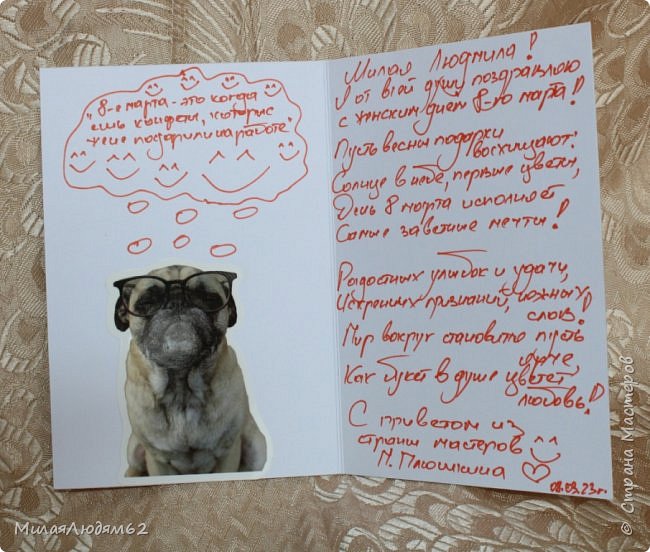 "8-е марта - это когда
ешь конфеты, которые
жене подарили на работе"
Милая Людмила!
От всей души поздравляю
с женским днём 8-го марта!
Пусть весны подарки
восхищают:
Солнце в небе, первые цветы,
День 8 марта исполняет
Самые заветные мечты!
Радостных улыбок и удачи,
Искренних признаний, нежных
слов!
Мир вокруг становится пусть
ярче,
Как букет в душе цветёт
любовь!
С приветом из
страны мастеров
Н. Плюшкина
08.03.23г.
МилаяЛюдям62
© Страна Мастеров